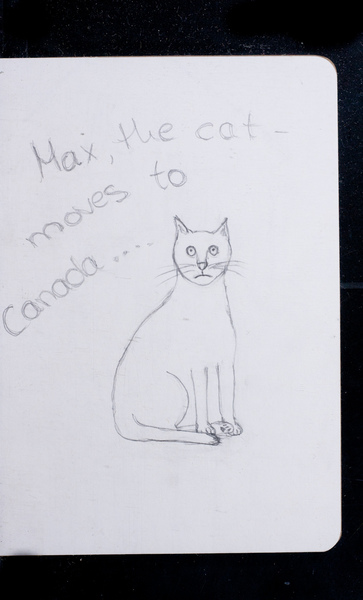 Max, the cat -
moves to
Canada ....